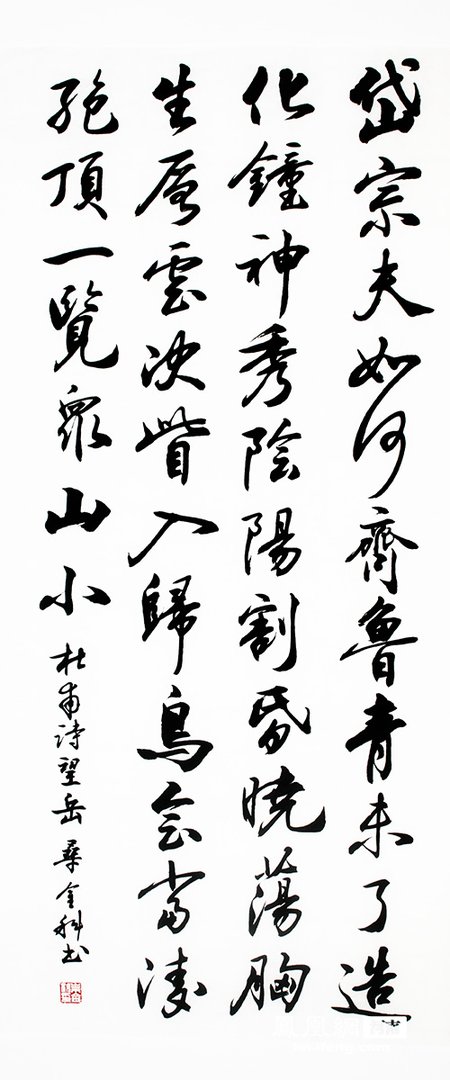 岱宗夫如何齊魯青未了造
化鐘神秀陰陽割昏曉蕩胸
生層雲决眥入歸鳥會當凌
絶頂一覽衆山小
杜甫诗望岳 桑金科书